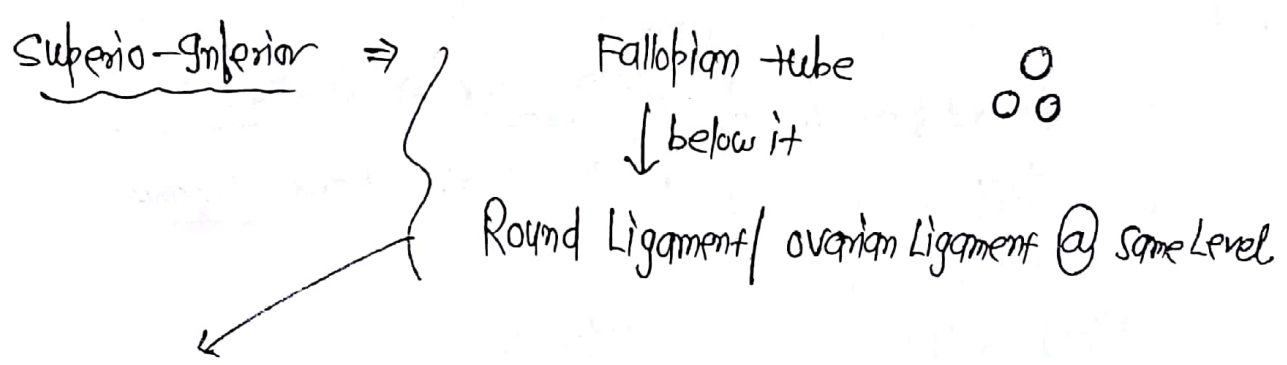 Superio-Inferior ⇒ Fallopian tube
↓ below it
Round Ligament/ ovarian Ligament @ same Level